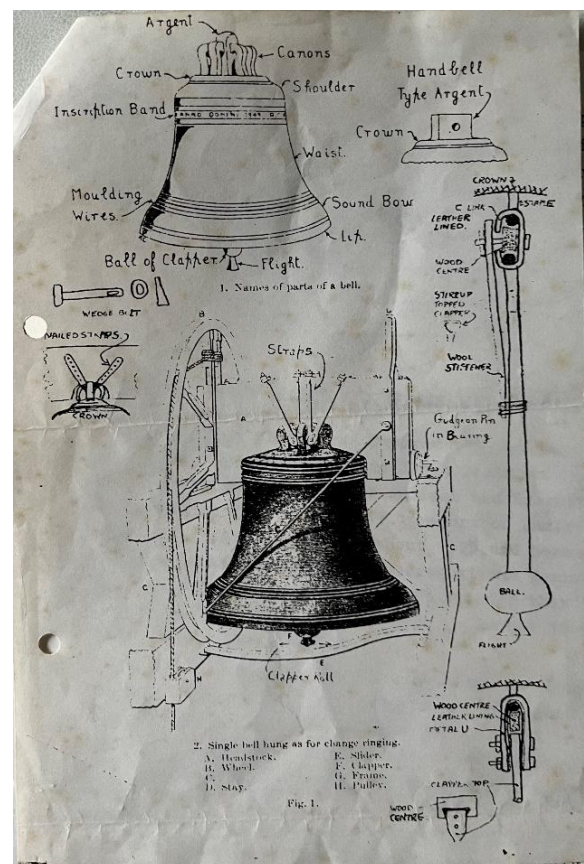 Argent
Canons
Crown
Shoulder
Inscription Band
Waist.
Moulding
Wires.
Sound Bow
Lip.
Ball of Clapper
Flight.
1. Names of parts of a bell.
Handbell
Type Argent
Crown
WEDGE BOLT
NAILED STRAPS
CROWN
CROWN
STAPLE
C LINK
LEATHER
LINED.
WOOD
CENTRE
STIRRUP
TOPPED
CLAPPER
WOOL
STIFFENER
BALL.
FLIGHT
Straps
Gudgeon Pin
in Bearing
B
A
C
C
F
E
H
2. Single bell hung as for change ringing.
A. Headstock.
B. Wheel.
C.
D. Stay.
E. Slider.
F. Clapper.
G. Frame.
H. Pulley.
Fig. 1.
WOOD CENTRE
LEATHER LINING
METAL U
CLAPPER TOP
WOOD
CENTRE